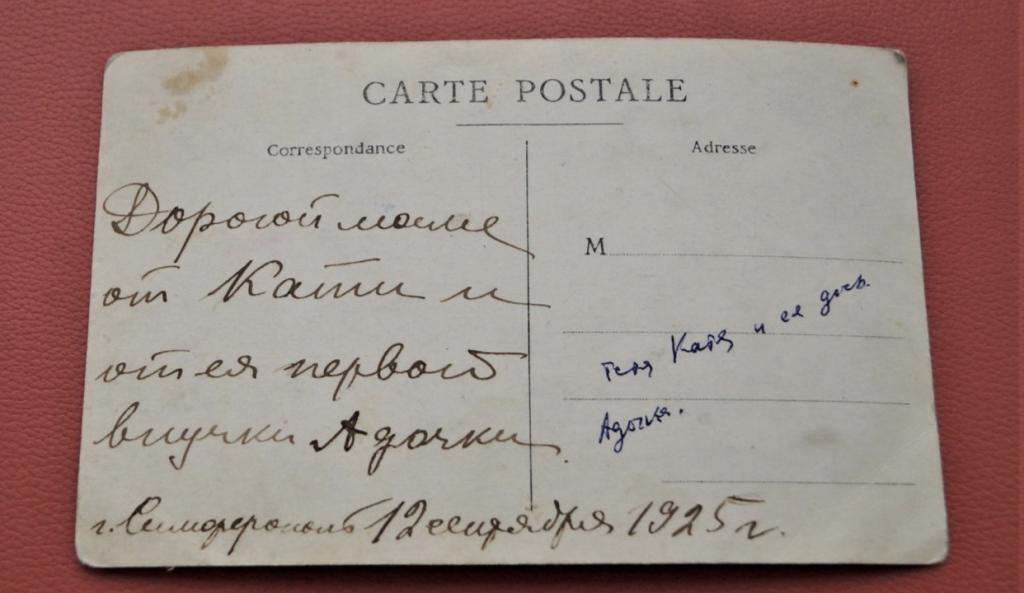 CARTE POSTALE
Correspondance
Adresse
Дорогой маме
от Кати и
от ея первой
внучки Адочки.
г. Симферополь 12 сентября 1925 г.
M
тетя Катя и ея дочь
Адочка.